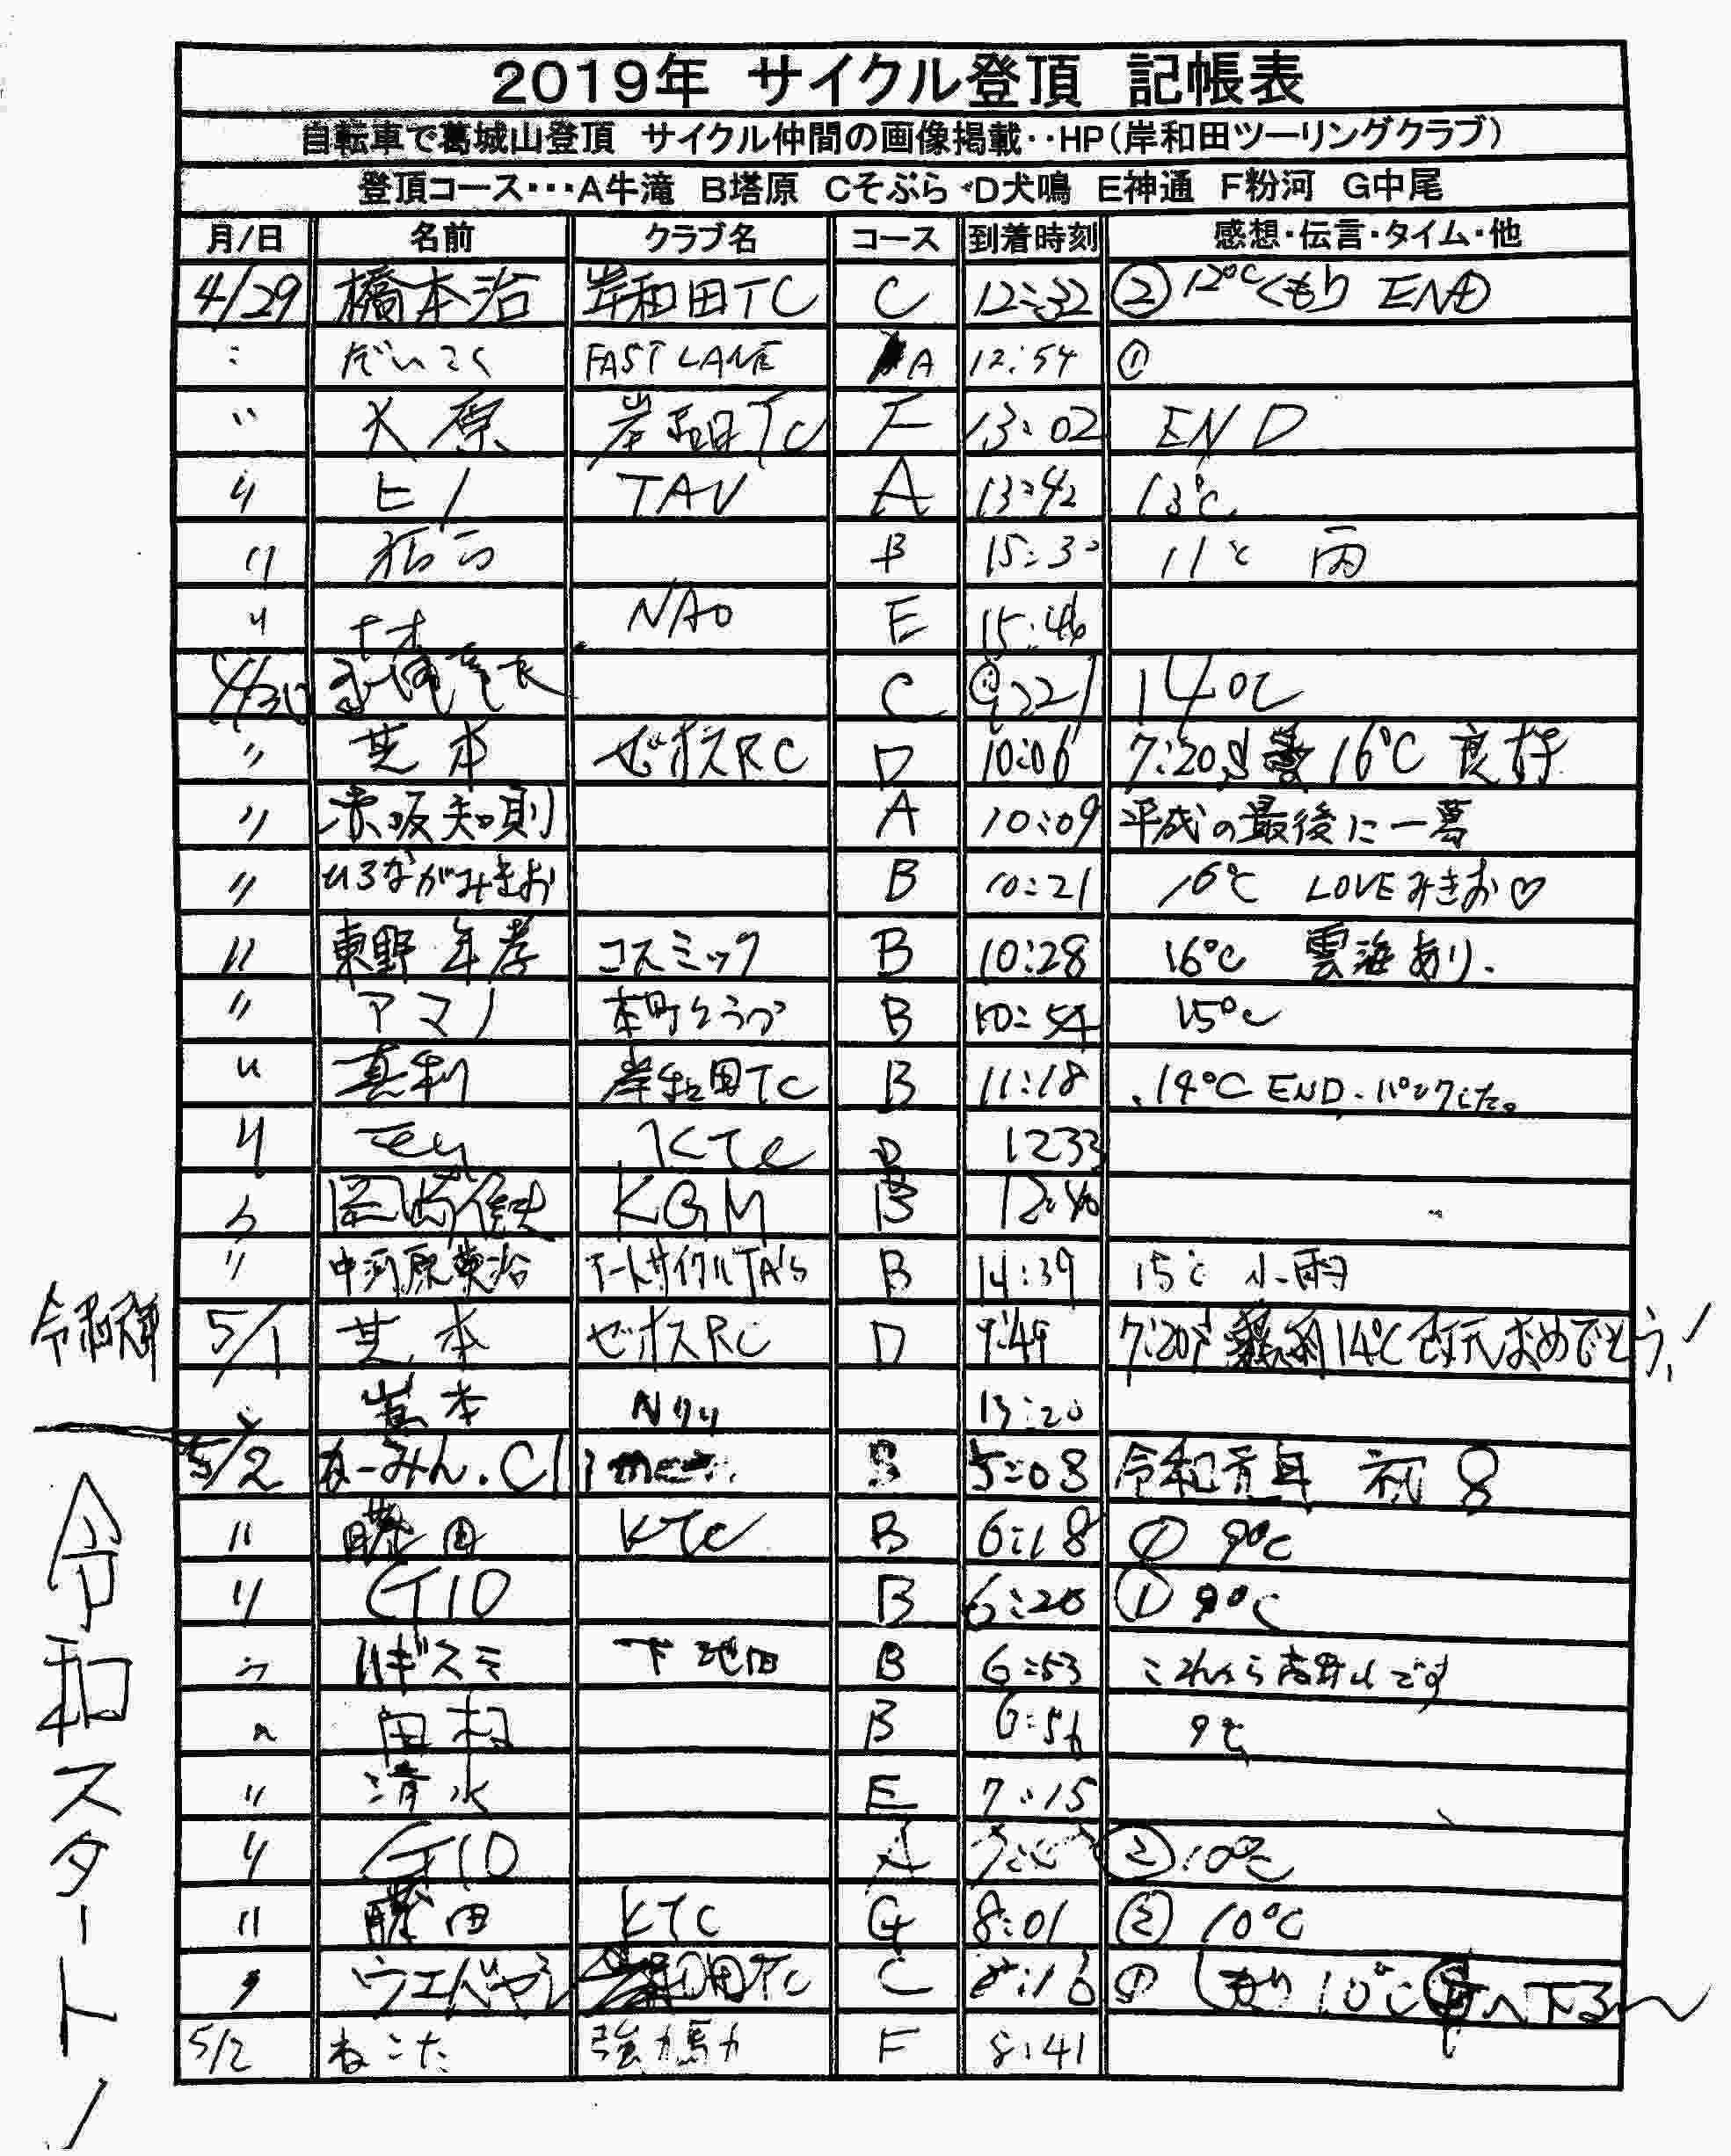 2019年 サイクル登頂 記帳表
自転車で葛城山登頂 サイクル仲間の画像掲載‥HP(岸和田ツーリングクラブ)
登頂コース・・・A牛滝 B塔原 Cそぶら D犬鳴 E神通 F粉河 G中尾
月/日 名前 クラブ名 コース 到着時刻 感想・伝言・タイム・他
4/29 橋本治 岸和田TC C 12:32 ② 12℃くもり END
〃 だいこく FAST LANE A 12:54 ①
〃 大原 岸和田TC F 13:02 END
〃 ヒノ TAV A 13:42 13℃
〃 B 15:30 11℃ 雨
〃 ナオ NAO E 15:46
4/30 C 9:21 14℃
〃 芝本 ゼオスRC D 10:06 7:20 16℃ 良好
〃 赤坂知則 A 10:09 平成の最後に一葛
〃 ひろながみきお B 10:21 16℃ LOVEみきお♡
〃 東野年孝 コスミック B 10:28 16℃ 雲海あり.
〃 アマノ 本町クラブ B 10:54 15℃
〃 真利 岸和田TC B 11:18 14℃ END.パンクした。
〃 KTC B 1233
〃 岡崎 KGM B 12:40
〃 中河原英治 アートサイクルTA's B 14:39 15℃ 小雨
令和元年 5/1 芝本 ゼオスRC D 9:49 7:20 14℃ 改元おめでとう!
〃 嵩本 Nリリ 13:20
5/2 かーみん.Cl B 5:03 令和元年 初
〃 藤田 KTC B 6:18 ① 9℃
〃 GIO B 6:20 ① 9℃
〃 ハギスミ 下池田 B 6:53 これから高野山です
〃 田村 B 6:56 9℃
〃 清水 E 7:15
〃 GIO A ② 10℃
〃 藤田 KTC G 8:01 ② 10℃
〃 ウエバヤシ 岸和田TC C 8:16 ① くもり 10℃ へ下る〜
5/2 ねこた 強力馬力 F 8:41
令和スタート!